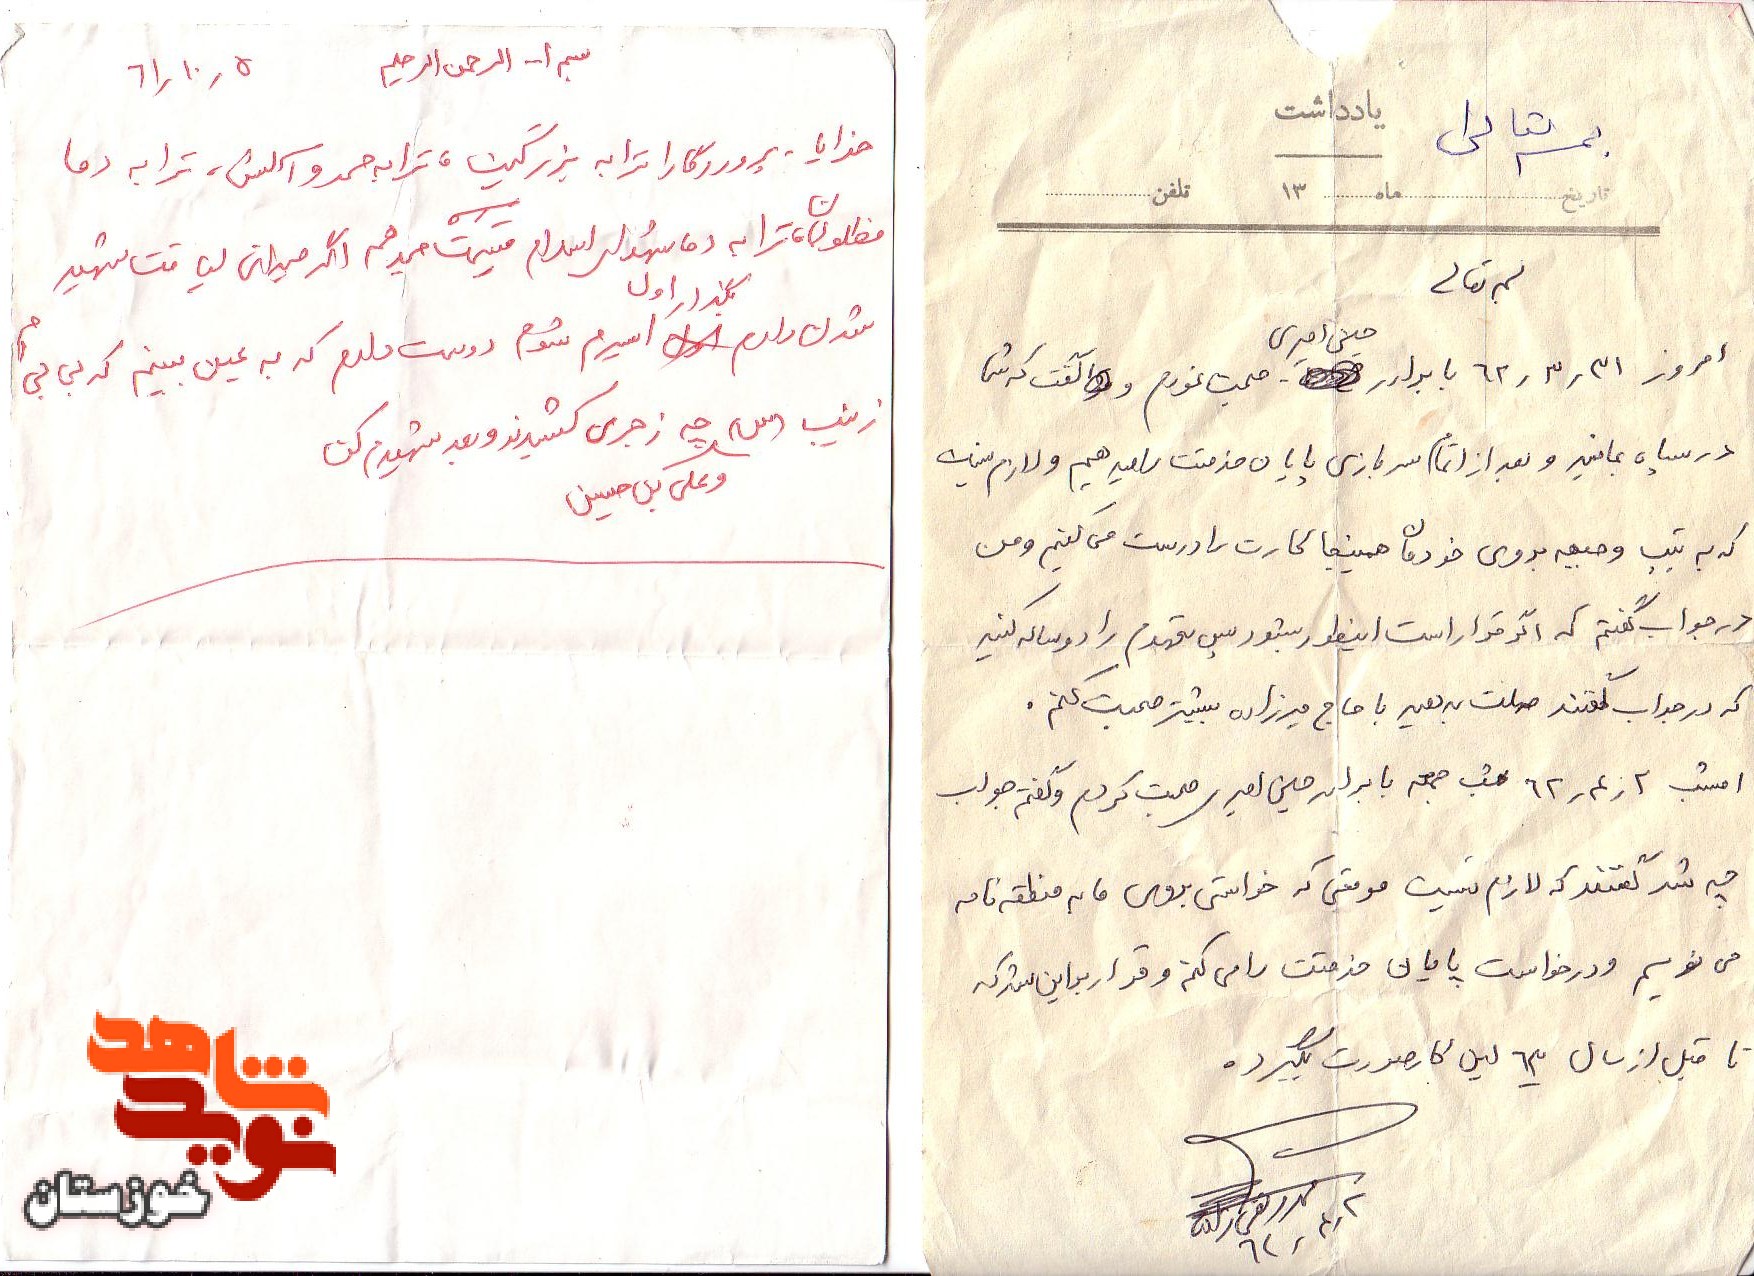 بسم ا... الرحمن الرحیم ۵ ر ۱۰ ر ۶۱
خدایا - پروردگارا ترا به بزرگیت ، ترا به حمد و آلش ، ترا به دماء
مظلومان ، ترا به دماء شهدای اسلام قسمت میدهم اگر میدانی لیاقت شهید
شدن دارم بگذار اول اسیرم شوم دوست دارم که به عین ببینم که بی بی ام
زینب (س) چه زجری کشیدند و بعد شهیدم کن
و علی بن حسین
شاهد
نوید
خوزستان
بسمه تعالی
یادداشت
تاریخ ماه ۱۳ تلفن
بسمه تعالی
امروز ۳۱ ر ۳ ر ۶۲ با برادر حسنی امیری صحبت نمودم و گفت که شما
در سپاه بمانید و بعد از اتمام سربازی پایان خدمت را میدهیم و لازم نیست
که به تیپ و جبهه بروی خودمان همینجا کارت را درست می کنیم و من
در جواب گفتم که اگر قرار است اینطور بشود پس تعهدم را دو ساله کنید
که در جواب گفتند مهلت بدهید با حاج میرزاده بیشتر صحبت کنم .
امشب ۲ ر ۴ ر ۶۲ شب جمعه با برادر حسنی امیری صحبت کردم و گفتم جواب
چه شد گفتند که لازم نیست موقعی که خواستی بروی ما به منطقه نامه
می نویسم و درخواست پایان خدمتت را می کنم و قرار بر این شد که
تا قبل از سال ۶۳ این کار صورت بگیرد .
۲ ر ۴ ر ۶۲